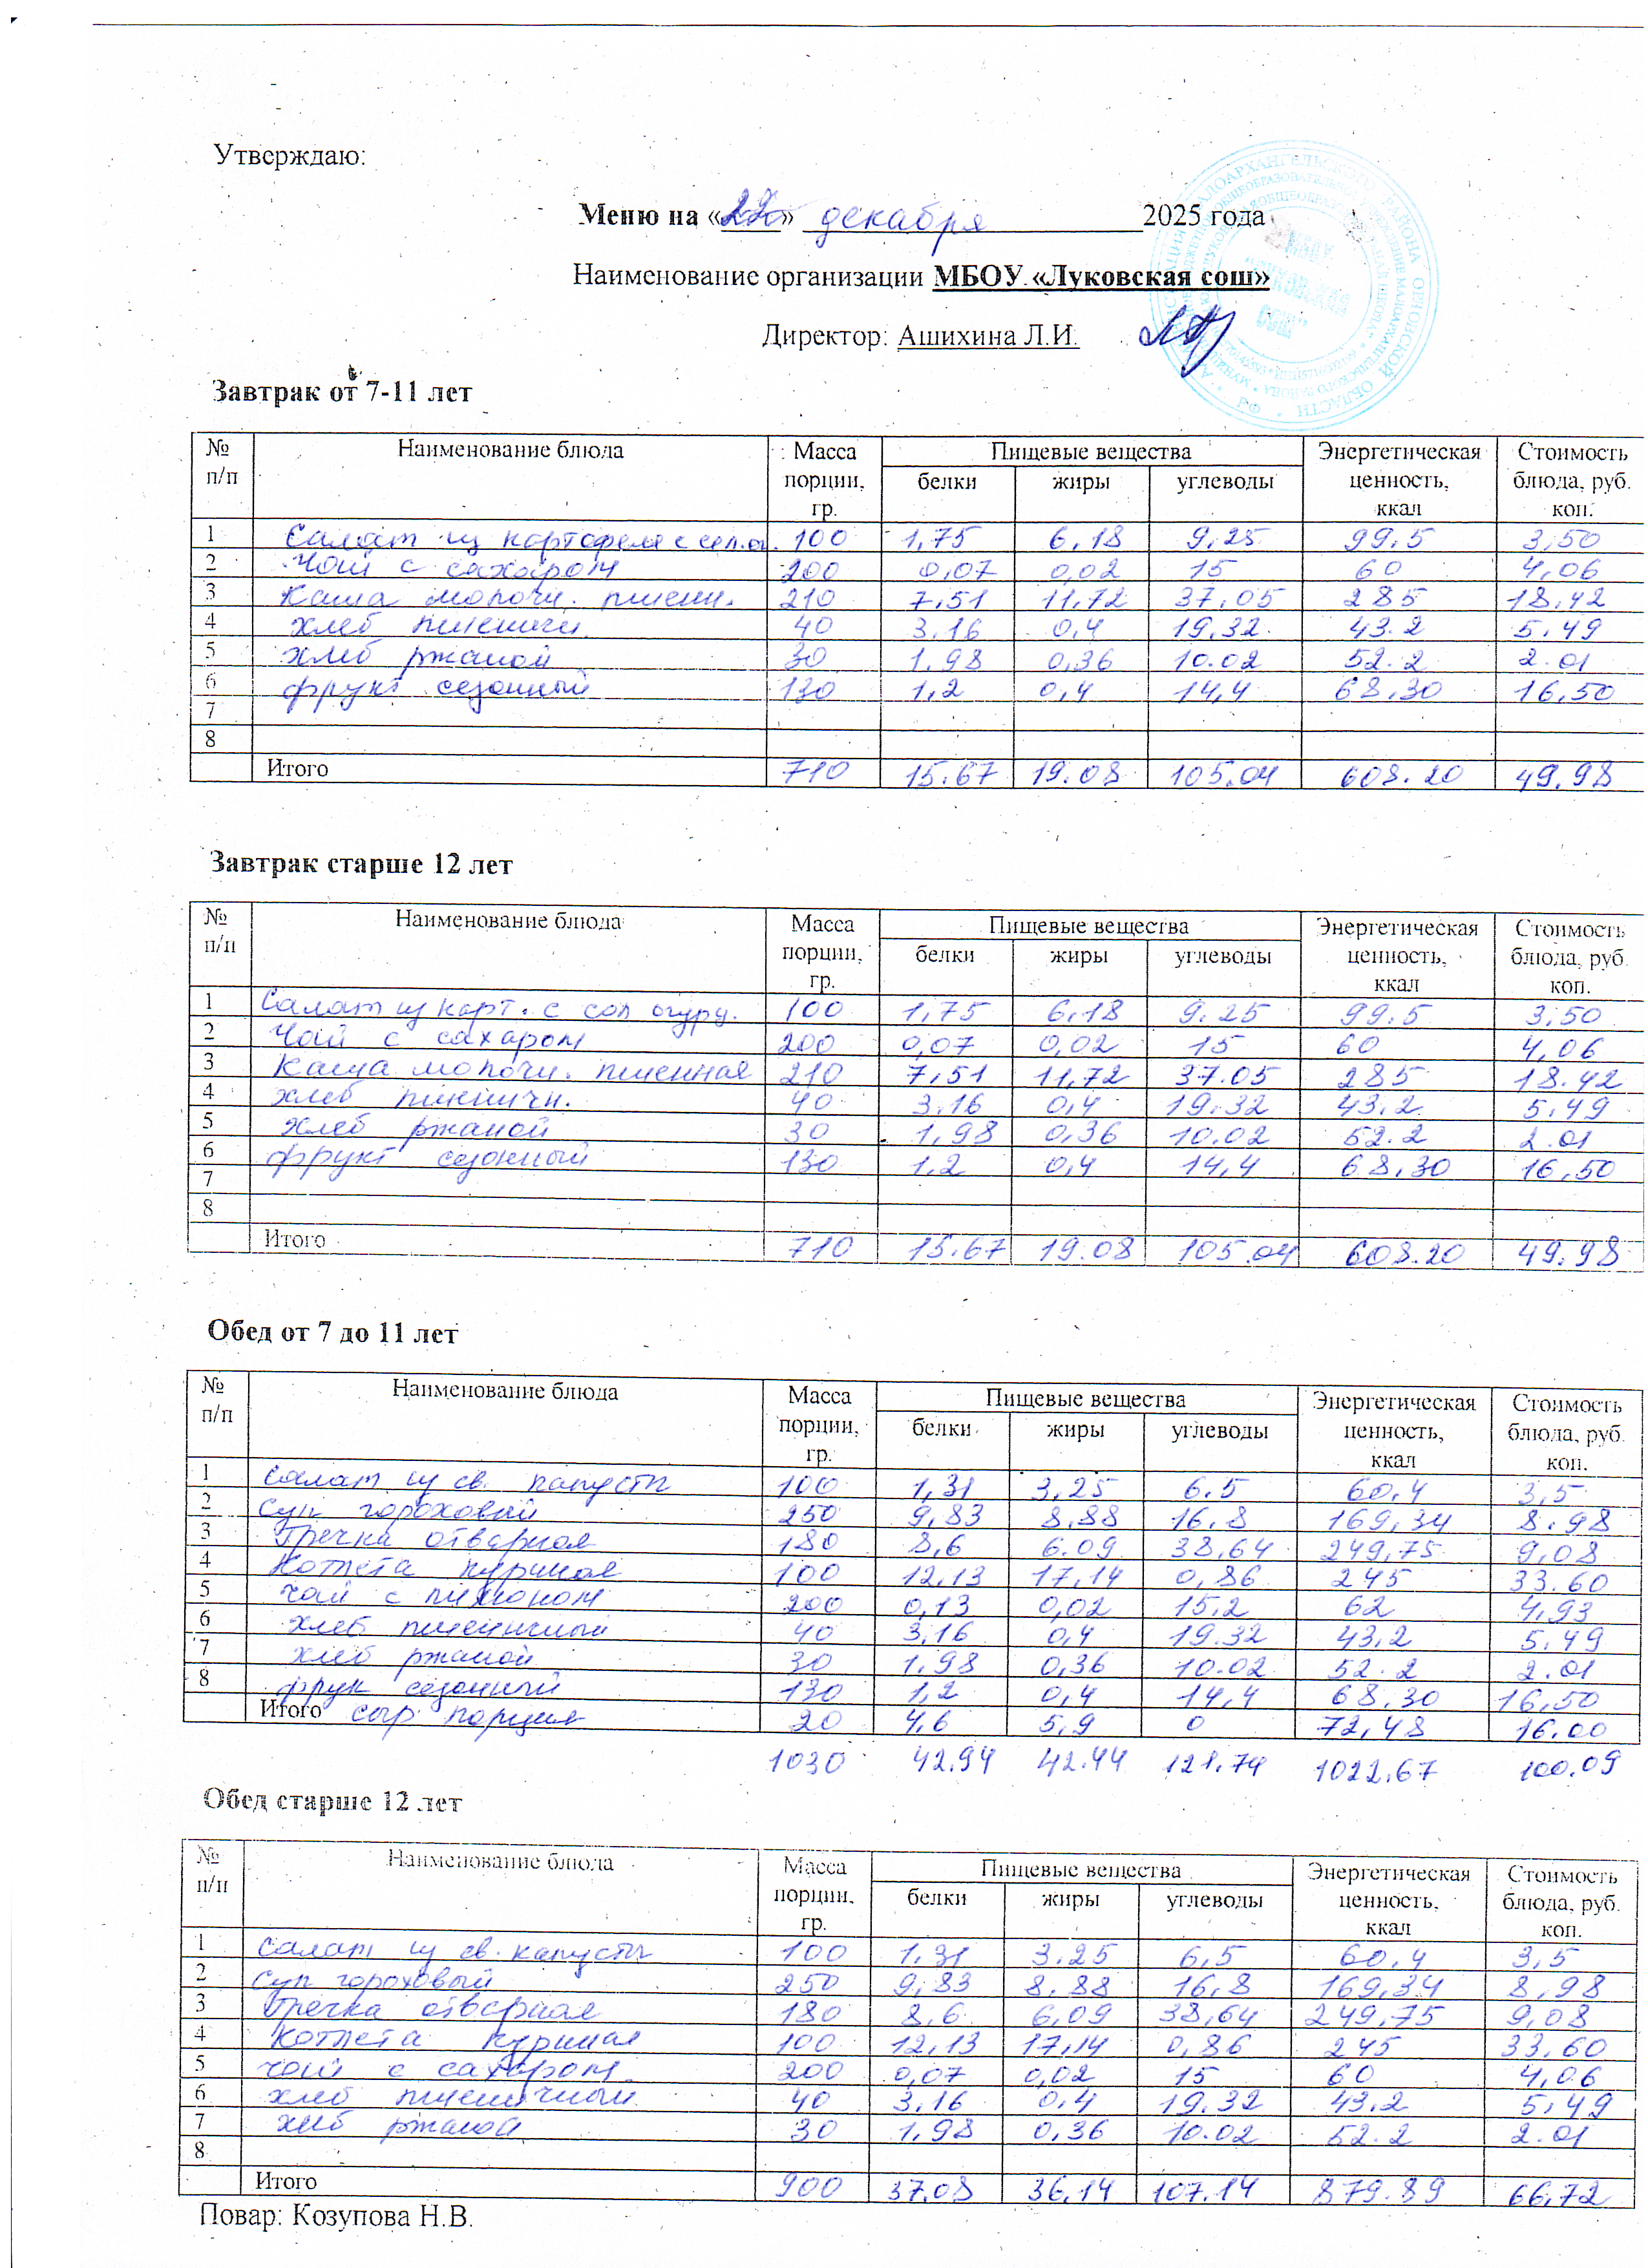 Утверждаю:
Меню на «22» декабря 2025 года
Наименование организации МБОУ «Луковская сош»
Директор: Ашихина Л.И.
Завтрак от 7-11 лет
№ п/п Наименование блюда Масса порции, гр. Пищевые вещества белки жиры углеводы Энергетическая ценность, ккал Стоимость блюда, руб. коп.
1 Салат из картофеля с сол.ог. 100 1,75 6,18 9,25 99,5 3,50
2 Чай с сахаром 200 0,07 0,02 15 60 4,06
3 Каша молочн. пшенн. 210 7,51 11,72 37,05 285 18,42
4 хлеб пшеничн. 40 3.16 0,4 19,32 43.2 5.49
5 хлеб ржаной 30 1.98 0,36 10.02 52.2 2.01
6 фрукт сезонный 130 1,2 0,4 14,4 68,30 16,50
7
8
Итого 710 15.67 19.08 105.04 608.20 49,98
Завтрак старше 12 лет
№ п/п Наименование блюда Масса порции, гр. Пищевые вещества белки жиры углеводы Энергетическая ценность, ккал Стоимость блюда, руб. коп.
1 Салат из карт. с сол огур. 100 1,75 6,18 9.25 99.5 3,50
2 Чай с сахаром 200 0,07 0,02 15 60 4,06
3 Каша молочн. пшенная 210 7,51 11,72 37.05 285 18.42
4 хлеб пшеничн. 40 3.16 0,4 19,32 43,2 5,49
5 хлеб ржаной 30 1,98 0,36 10.02 52.2 2.01
6 фрукт сезонный 130 1,2 0,4 14,4 68,30 16,50
7
8
Итого 710 15.67 19.08 105.04 608.20 49.98
Обед от 7 до 11 лет
№ п/п Наименование блюда Масса порции, гр. Пищевые вещества белки жиры углеводы Энергетическая ценность, ккал Стоимость блюда, руб. коп.
1 Салат из св. капусты 100 1,31 3,25 6.5 60,4 3,5
2 Суп гороховый 250 9,83 8,88 16,8 169,34 8.98
3 Гречка отварная 180 8,6 6.09 38,64 249,75 9,08
4 Котлета куриная 100 12,13 17,14 0,86 245 33.60
5 чай с лимоном 200 0,13 0,02 15,2 62 4,93
6 хлеб пшеничный 40 3,16 0,4 19.32 43,2 5.49
7 хлеб ржаной 30 1,98 0,36 10.02 52.2 2.01
8 фрук сезонный 130 1,2 0,4 14,4 68,30 16,50
Итого сыр порция 20 4,6 5,9 0 72,48 16.00
1030 42.94 42.44 121.74 1022.67 100.09
Обед старше 12 лет
№ п/п Наименование блюда Масса порции, гр. Пищевые вещества белки жиры углеводы Энергетическая ценность, ккал Стоимость блюда, руб. коп.
1 Салат из св. капусты 100 1,31 3.25 6,5 60,4 3,5
2 Суп гороховый 250 9,83 8,88 16,8 169,34 8,98
3 Гречка отварная 180 8,6 6,09 38,64 249,75 9,08
4 Котлета куриная 100 12,13 17,14 0,86 245 33,60
5 чай с сахаром 200 0,07 0,02 15 60 4,06
6 хлеб пшеничный 40 3,16 0,4 19.32 43,2 5,49
7 хлеб ржаной 30 1,98 0,36 10.02 52.2 2.01
8
Итого 900 37.08 36,14 107.14 879.89 66,72
Повар: Козупова Н.В.